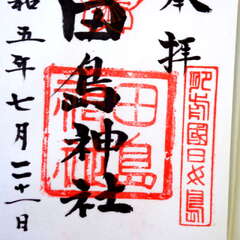 奉拝
肥前國日女島
田島神社
田島
神社
和五年七月二十一日